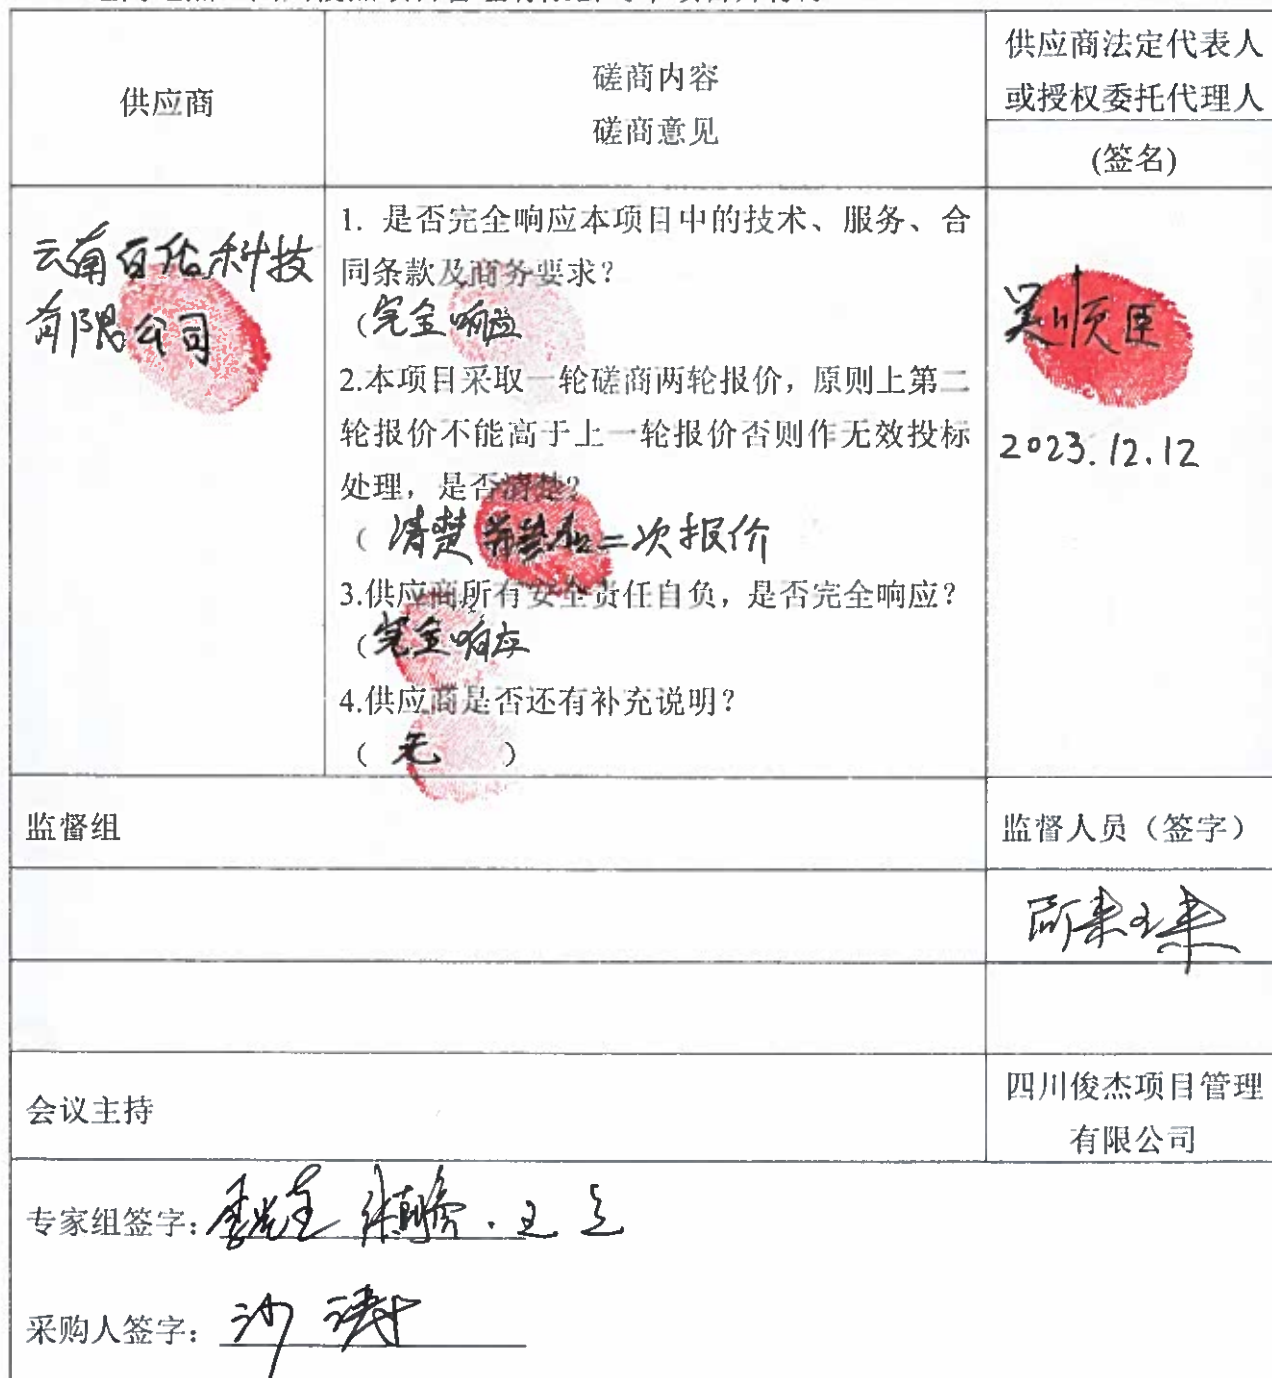 供应商
磋商内容
磋商意见
供应商法定代表人
或授权委托代理人
(签名)
云南百佑科技
有限公司
1. 是否完全响应本项目中的技术、服务、合
同条款及商务要求？
（完全响应
2.本项目采取一轮磋商两轮报价，原则上第二
轮报价不能高于上一轮报价否则作无效投标
处理，是否清楚？
（ 清楚 二次报价
3.供应商所有安全责任自负，是否完全响应？
（完全响应
4.供应商是否还有补充说明？
（ 无 ）
吴顺臣
2023.12.12
监督组
监督人员（签字）
会议主持
四川俊杰项目管理
有限公司
专家组签字：
采购人签字：沙涛